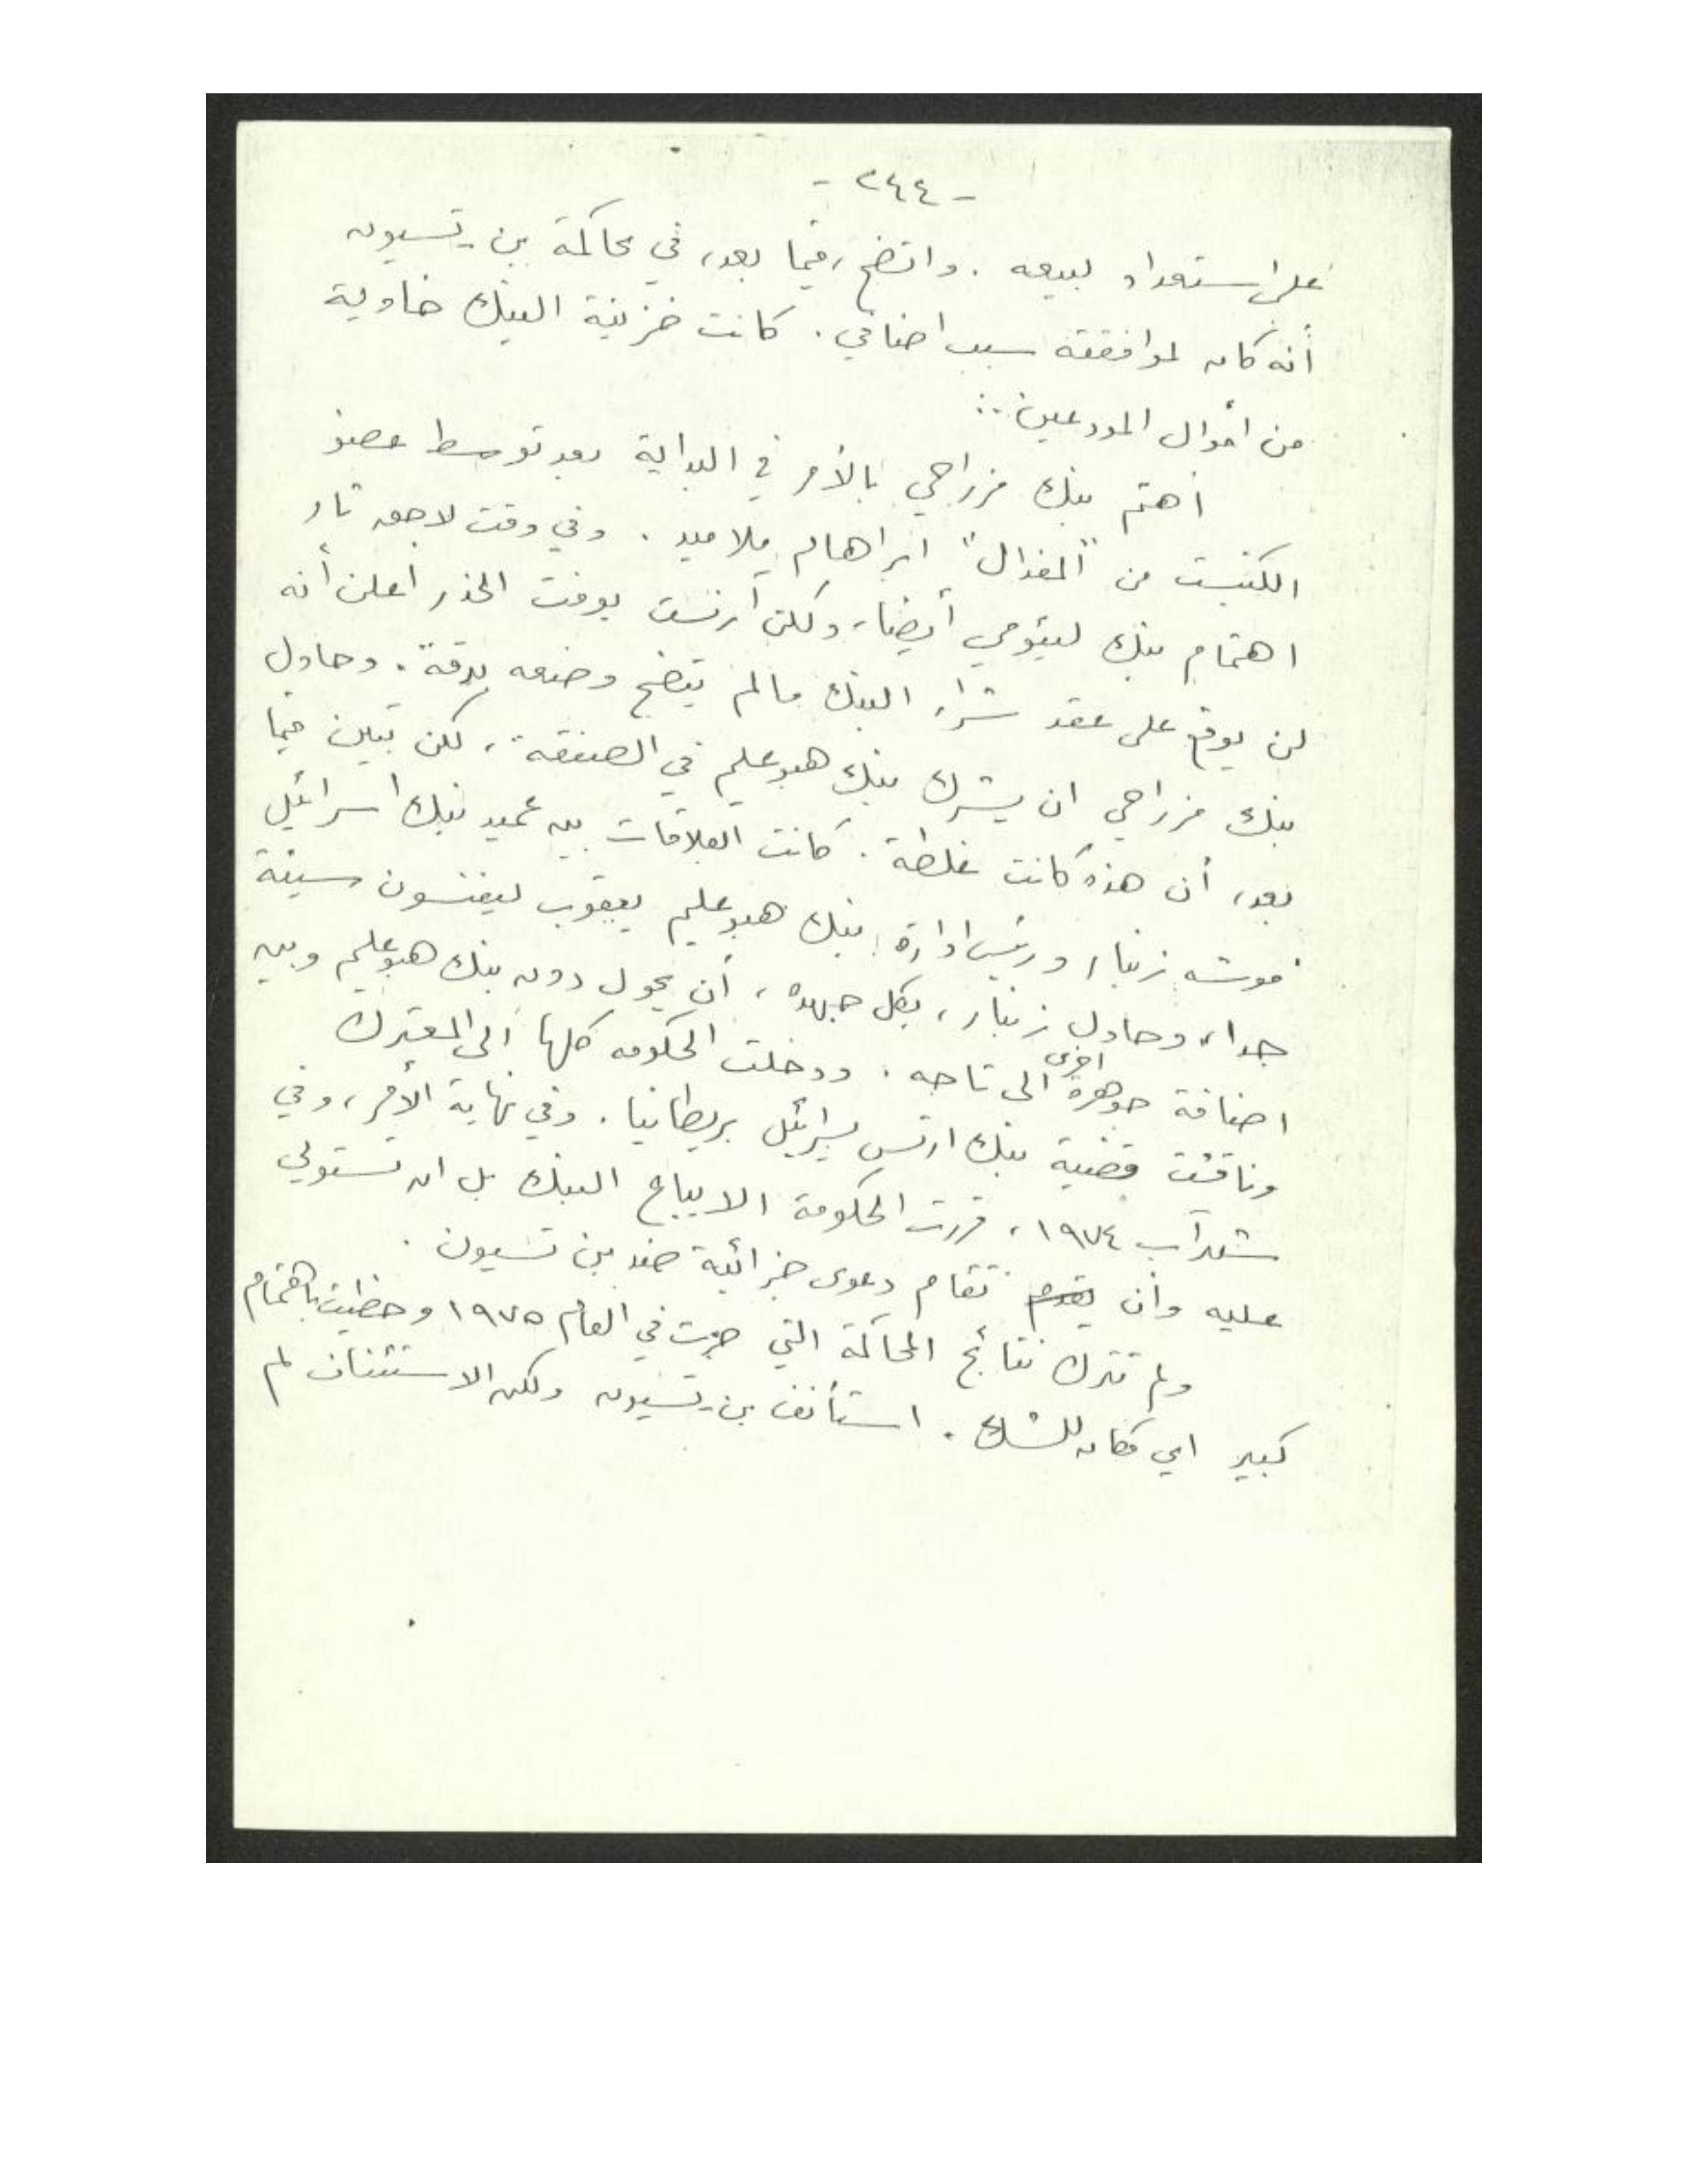 - ٢٤٤ -
على استعداد لبيعه . واتضح ، فيما بعد ، في محاكمة بن - تسيون
أنه كان لموافقته سبب اضافي . كانت خزينة البنك خاوية
من اموال المودعين ..
اهتم بنك مزراحي بالأمر في البداية بعد توسط عضو
الكنيست من "المفدال" ابراهام ملاميد . وفي وقت لاحق ثار
اهتمام بنك ليئومي أيضا ، ولكن أرنست يوفت الحذر اعلن أنه
لن يوقع على عقد شراء البنك مالم يتضح وضعه بدقة . وحاول
بنك مزراحي ان يشرك بنك هبوعليم في الصفقة ، لكن تبين فيما
بعد ، أن هذه كانت غلطة . كانت العلاقات بين عميد بنك اسرائيل
موشه زنبار ورئيس ادارة بنك هبوعليم يعقوب ليفنسون سيئة
جدا ، وحاول زنبار ، بكل جهده ، أن يحول دون بنك هبوعليم وبين
اضافة جوهرة اخرى الى تاجه . ودخلت الحكومه كلها الى المعترك
وناقشت قضية بنك ارتس يسرائيل بريطانيا . وفي نهاية الأمر ، وفي
شهر آب ١٩٧٤ ، قررت الحكومة الا يباع البنك بل ان تستولي
عليه وأن تقام دعوى جزائية ضد بن تسيون .
ولم تترك نتائج المحاكمة التي جرت في العام ١٩٧٥ وحظيت باهتمام
كبير اي مكان للشك . استأنف بن - تسيون ولكن الاستئناف لم